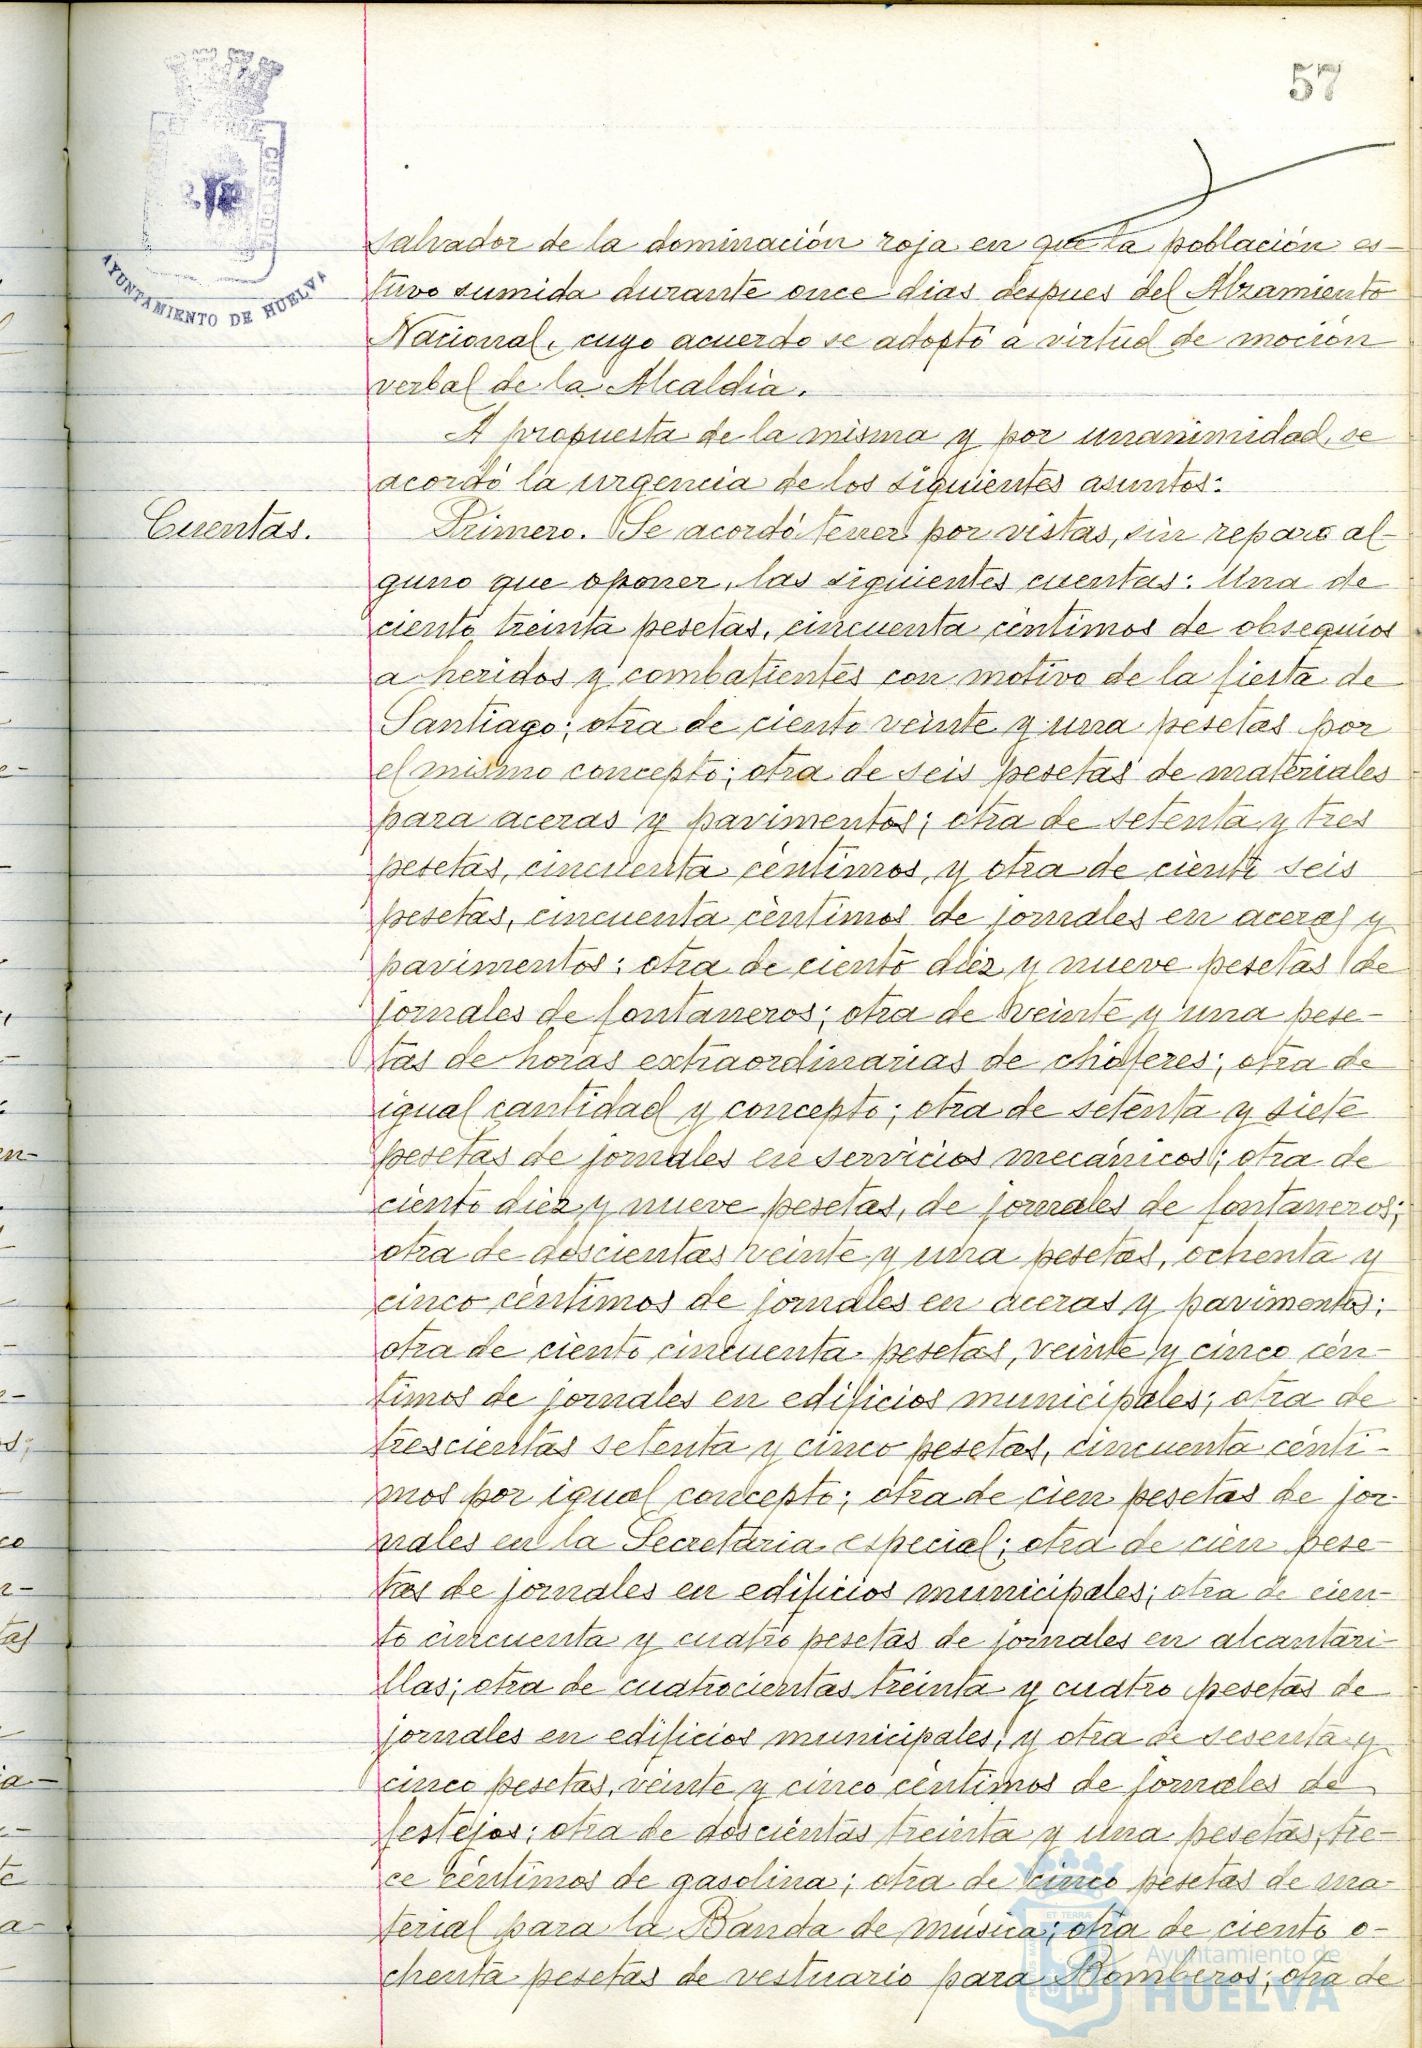 57
AYUNTAMIENTO DE HUELVA
salvador de la dominación roja en que la población es-
tuvo sumida durante once dias despues del Alzamiento
Nacional, cuyo acuerdo se adoptó a virtud de moción
verbal de la Alcaldía.
A propuesta de la misma y por unanimidad, se
acordó la urgencia de los siguientes asuntos:
Cuentas.
Primero. Se acordó tener por vistas, sin reparo al-
guno que oponer, las siguientes cuentas: Una de
ciento treinta pesetas, cincuenta céntimos de obsequios
a heridos y combatientes con motivo de la fiesta de
Santiago; otra de ciento veinte y una pesetas por
el mismo concepto; otra de seis pesetas de materiales
para aceras y pavimentos; otra de setenta y tres
pesetas, cincuenta céntimos, y otra de ciento seis
pesetas, cincuenta céntimos de jornales en aceras y
pavimentos; otra de ciento diez y nueve pesetas de
jornales de fontaneros; otra de veinte y una pese-
tas de horas extraordinarias de chóferes; otra de
igual cantidad y concepto; otra de setenta y siete
pesetas de jornales en servicios mecánicos; otra de
ciento diez y nueve pesetas, de jornales de fontaneros;
otra de doscientas veinte y una pesetas, ochenta y
cinco céntimos de jornales en aceras y pavimentos;
otra de ciento cincuenta pesetas, veinte y cinco cén-
timos de jornales en edificios municipales; otra de
trescientas setenta y cinco pesetas, cincuenta cénti-
mos por igual concepto; otra de cien pesetas de jor-
nales en la Secretaria especial; otra de cien pese-
tas de jornales en edificios municipales; otra de cien-
to cincuenta y cuatro pesetas de jornales en alcantari-
llas; otra de cuatrocientas treinta y cuatro pesetas de
jornales en edificios municipales; y otra de sesenta y
cinco pesetas, veinte y cinco céntimos de jornales de
festejos; otra de doscientas treinta y una pesetas, tre-
ce céntimos de gasolina; otra de cinco pesetas de ma-
terial para la Banda de música; otra de ciento o-
chenta pesetas de vestuario para Bomberos; otra de
Ayuntamiento de
HUELVA